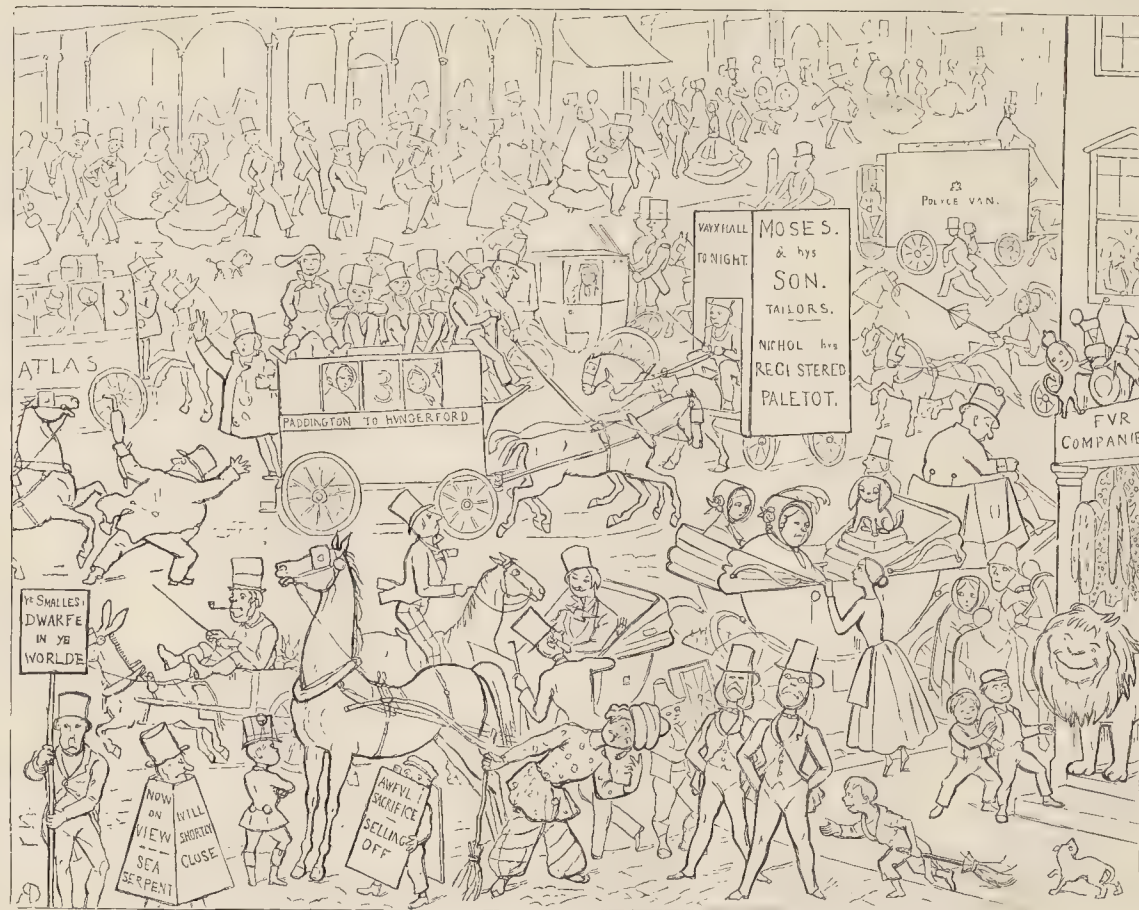 POLYCE VAN.
VAVXHALL
TO NIGHT.
MOSES.
& hys
SON.
TAILORS.
NICHOL hys
REGISTERED
PALETOT.
3
ATLAS
3
PADDINGTON TO HVNGERFORD
FVR
COMPANIE
YE SMALLEST
DWARFE
IN YE
WORLDE
NOW
ON
VIEW
SEA
SERPENT
WILL
SHORTLY
CLOSE
AWFVL!
SACRIFICE
SELLING
OFF
RD